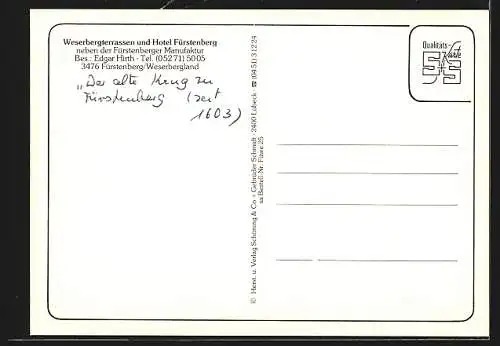 Weserbergterrassen und Hotel Fürstenberg
neben der Fürstenberger Manufaktur
Bes.: Edgar Hirth - Tel. (05271) 5005
3476 Fürstenberg/Weserbergland
„Der alte Krug zu
Fürstenberg (seit
1603)
© Herst. u. Verlag Schöning & Co + Gebrüder Schmidt · 2400 Lübeck · ☎ (04 51) 3 12 24
sa Bestell-Nr. Füwe 25
Qualitäts-
Karte